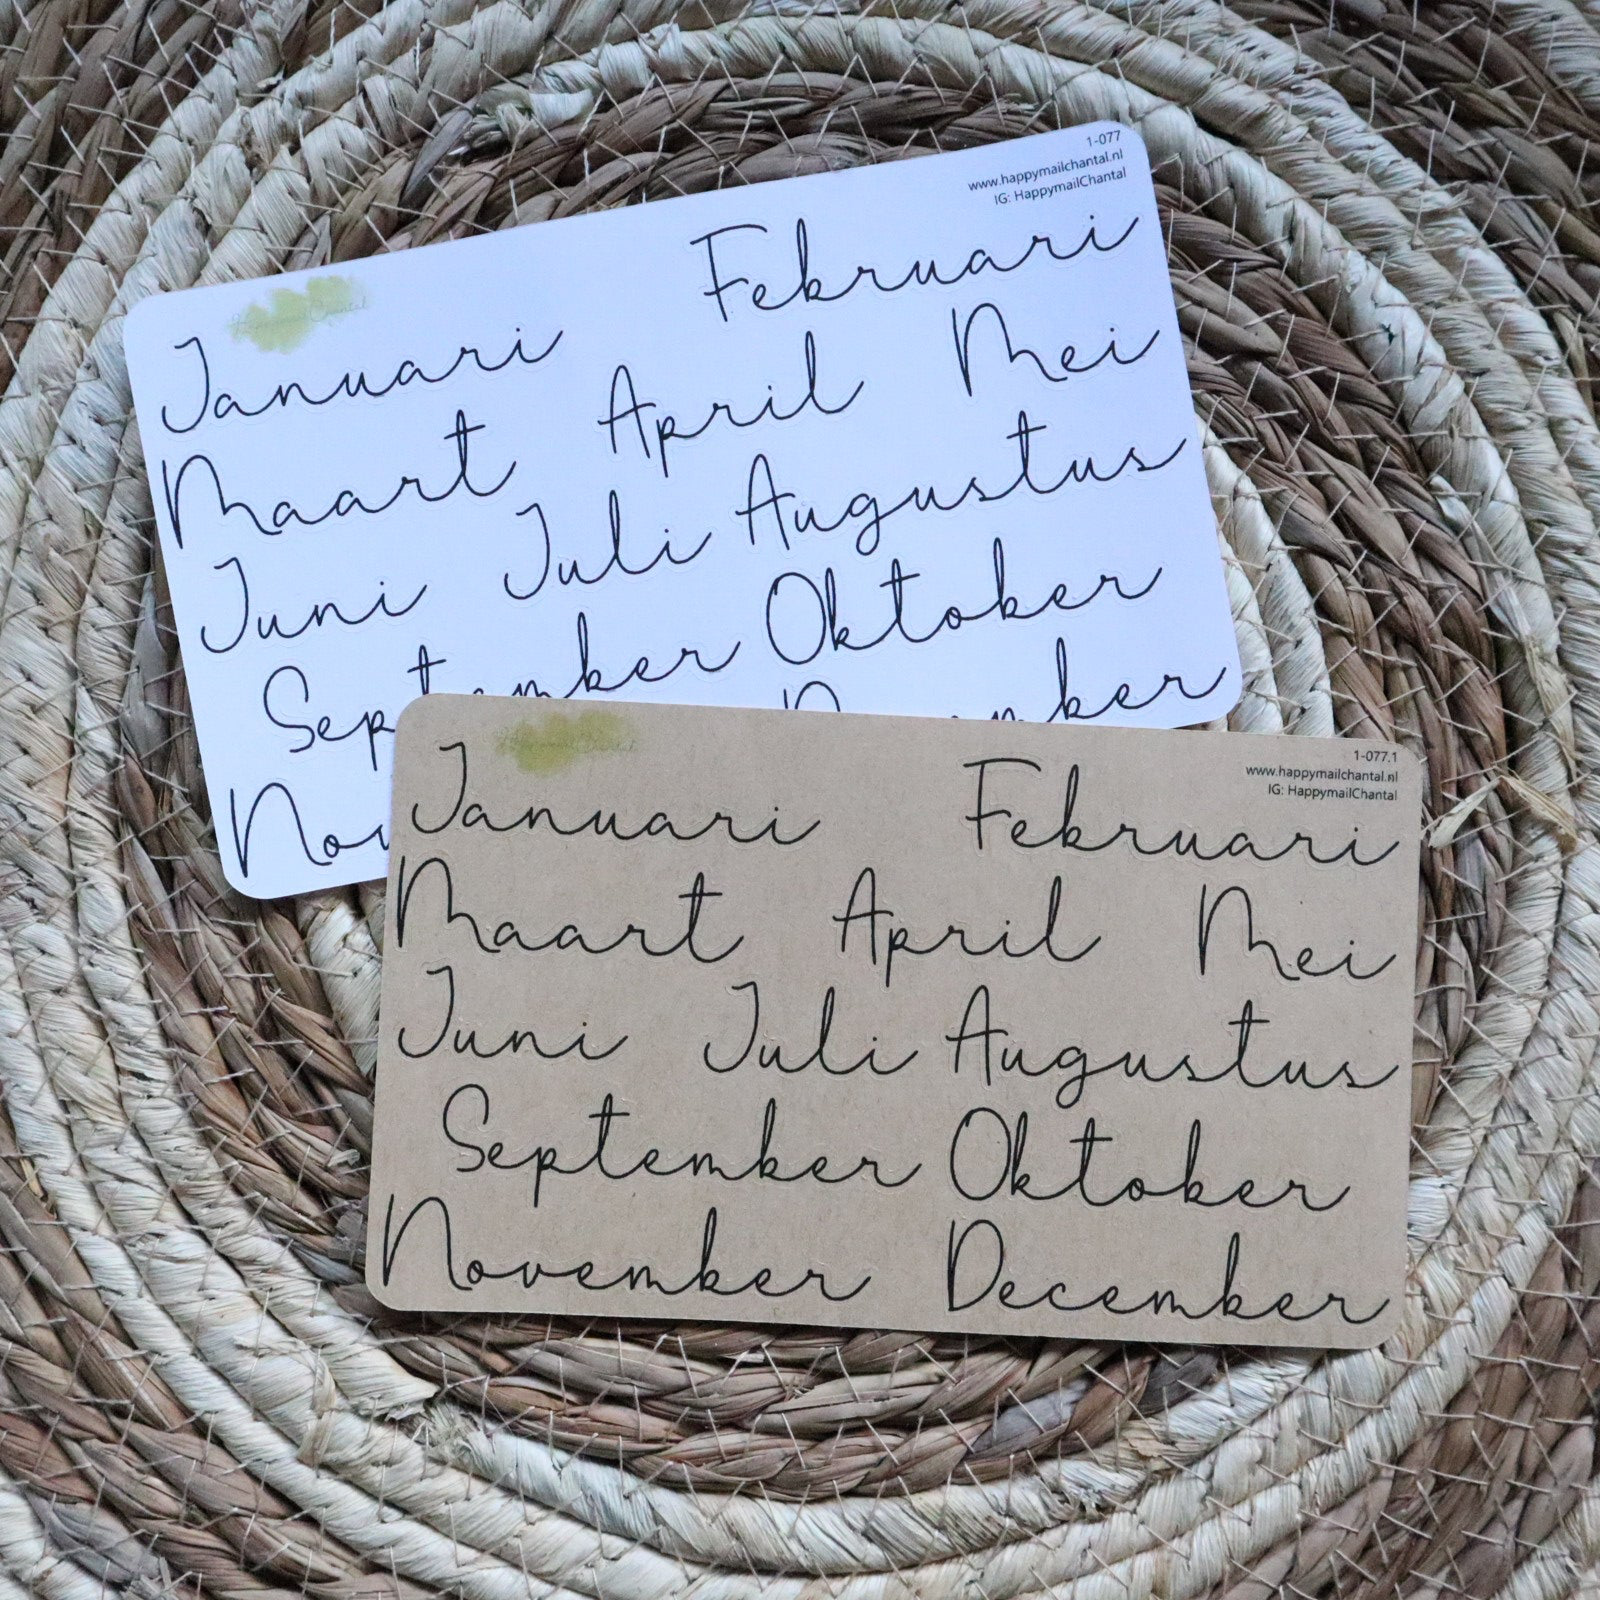 1-077
www.happymailchantal.nl
IG: HappymailChantal
HappymailChantal
Januari Februari
Maart April Mei
Juni Juli Augustus
September Oktober
1-077.1
www.happymailchantal.nl
IG: HappymailChantal
HappymailChantal
Januari Februari
Maart April Mei
Juni Juli Augustus
September Oktober
November December